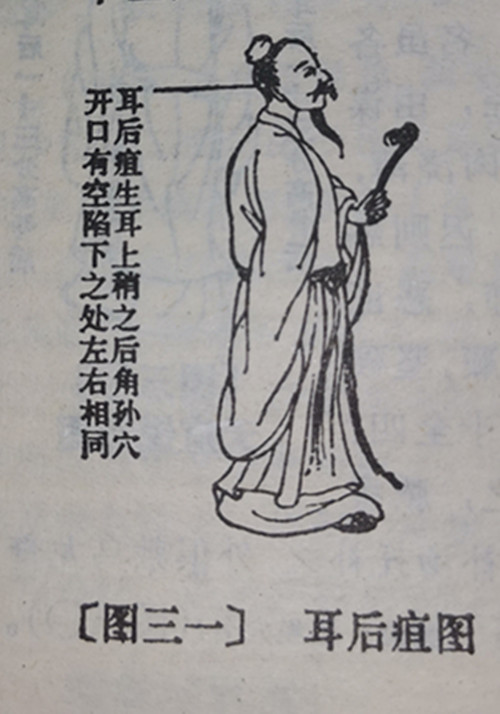 耳后疽生耳上稍之后角孙穴
开口有空陷下之处左右相同
〔图三一〕 耳后疽图